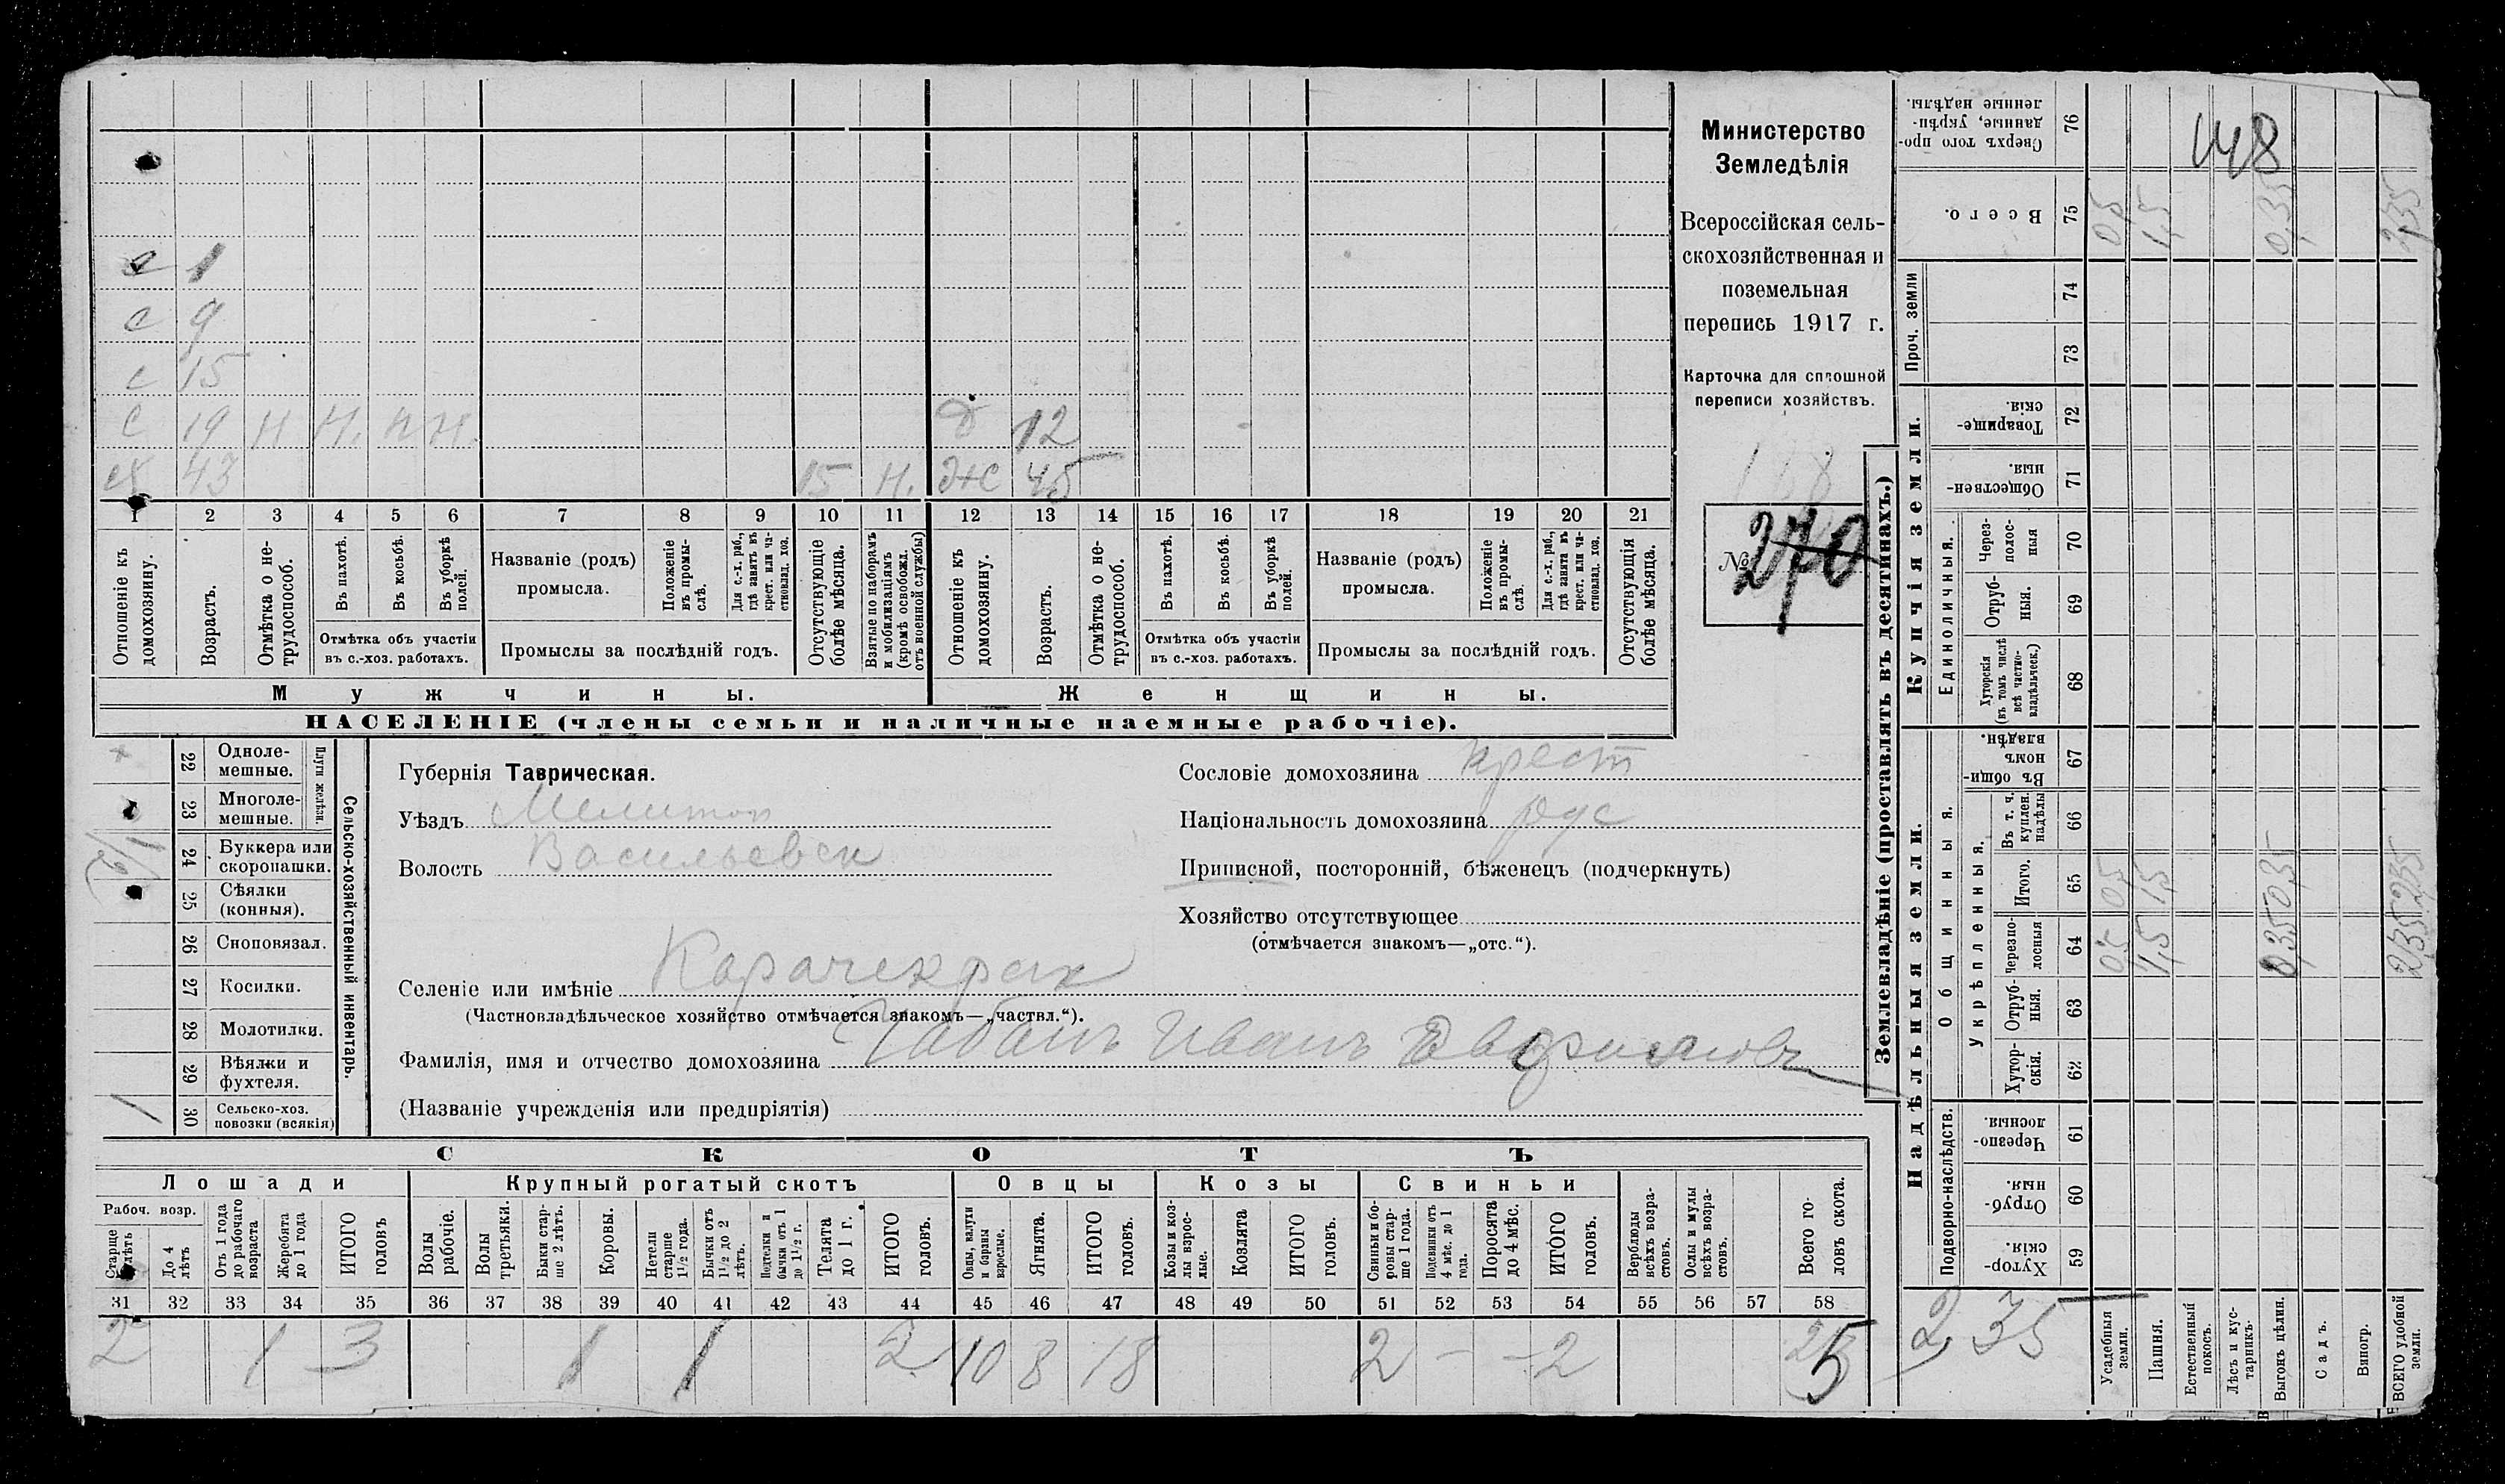 с 1
с 9
с 15
с 19 н н. н н. д 12
сх 43 15 н. ж 45
1 2 3 4 5 6 7 8 9 10 11 12 13 14 15 16 17 18 19 20 21
Отношеніе къ домохозяину.
Возрастъ.
Отмѣтка о не-трудоспособ.
Въ пахотѣ.
Въ косьбѣ.
Въ уборкѣ полей.
Отмѣтка объ участіи
въ с.-хоз. работахъ.
Названіе (родъ)
промысла.
Положеніе въ промы-слѣ.
Для с.-х. раб., гдѣ занятъ въ крест. или ча-стновлад. хоз.
Промыслы за послѣдній годъ.
Отсутствующіе болѣе мѣсяца.
Взятые по наборамъ и мобилизаціямъ (кромѣ освобожд. отъ военной службы)
Отношеніе къ домохозяину.
Возрастъ.
Отмѣтка о не-трудоспособ.
Въ пахотѣ.
Въ косьбѣ.
Въ уборкѣ полей.
Отмѣтка объ участіи
въ с.-хоз. работахъ.
Названіе (родъ)
промысла.
Положеніе въ промы-слѣ.
Для с.-х. раб., гдѣ занята въ крест. или ча-стновлад. хоз.
Промыслы за послѣдній годъ.
Отсутствующія болѣе мѣсяца.
Мужчины. Женщины.
НАСЕЛЕНІЕ (члены семьи и наличные наемные рабочіе).
Министерство
Земледѣлія
Всероссійская сель-
скохозяйственная и
поземельная
перепись 1917 г.
Карточка для сплошной
переписи хозяйствъ.
№ 270
22 Одноле-мешные.
23 Многоле-мешные.
Плуги желѣзн.
24 Буккера или скоропашки.
25 Сѣялки (конныя).
26 Сноповязал.
27 Косилки.
28 Молотилки.
29 Вѣялки и фухтеля.
1 30 Сельско-хоз. повозки (всякія)
Сельско-хозяйственный инвентарь.
Губернія Таврическая.
Уѣздъ Мелитоп
Волость Васильевск
Сословіе домохозяина крест
Національность домохозяина рус
Приписной, посторонній, бѣженецъ (подчеркнуть)
Хозяйство отсутствующее
(отмѣчается знакомъ—„отс.“).
Селеніе или имѣніе Карачекрак
(Частновладѣльческое хозяйство отмѣчается знакомъ—„частвл.“).
Фамилія, имя и отчество домохозяина Чабанъ Иванъ
(Названіе учрежденія или предпріятія)
СКОТЪ
Лошади Крупный рогатый скотъ Овцы Козы Свиньи
Рабоч. возр.
Старше 4 лѣтъ
До 4 лѣтъ
Отъ 1 года до рабочаго возраста
Жеребята до 1 года
ИТОГО головъ
Волы рабочіе.
Волы третьяки.
Быки стар-ше 2 лѣтъ.
Коровы.
Нетели старше 1½ года.
Бычки отъ 1½ до 2 лѣтъ.
Подтелки и бычки отъ 1 до 1½ г.
Телята до 1 г.
ИТОГО головъ.
Овцы, валухи и бараны взрослые.
Ягнята.
ИТОГО головъ.
Козы и коз-лы взрос-лые.
Козлята
ИТОГО головъ.
Свиньи и бо-ровы стар-ше 1 года.
Подсвинки отъ 4 мѣс. до 1 года.
Поросята до 4 мѣс.
ИТОГО головъ.
Верблюды всѣхъ возра-стовъ.
Ослы и мулы всѣхъ возра-стовъ.
Всего го-ловъ скота.
31 32 33 34 35 36 37 38 39 40 41 42 43 44 45 46 47 48 49 50 51 52 53 54 55 56 57 58
2 1 3 1 1 2 10 8 18 2 - - 2 25
Землевладѣніе (проставлять въ десятинахъ.)
148
Сверхъ того про-данные, укрѣп-ленные надѣлы. 76
Всего. 75 0,5 1,5 0,35 2,35
Проч. земли 74
73
Купчія земли.
Товарище-скія. 72
Обществен-ныя. 71
Единоличныя.
Через-полос-ныя 70
Отруб-ныя. 69
Хуторскія (въ томъ числѣ всѣ частно-владѣльческ.) 68
Надѣльныя земли.
Общинныя.
Въ общи-номъ владѣн. 67
Укрѣпленныя.
Въ т. ч. куплен. надѣлы 66
Итого. 65 0,5 1,5 0,35 2,35
Черезпо-лосныя 64 0,5 1,5 0,35 2,35
Отруб-ныя. 63
Хутор-скія. 62
Подворно-наслѣдств.
Черезпо-лосныя. 61
Отруб-ныя. 60
Хутор-скія. 59
2,35
Усадебныя земли.
Пашня.
Естественный покосъ.
Лѣсъ и кус-тарникъ.
Выгонъ цѣлин.
Садъ.
Виногр.
ВСЕГО удобной земли.